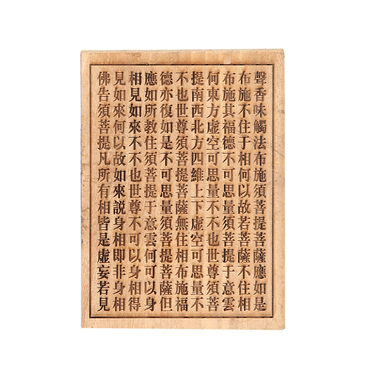 聲香味觸法布施須菩提菩薩應如是
布施不住于相何以故若菩薩不住相
布施其福德不可思量須菩提于意云
何東方虛空可思量不不也世尊須菩
提南西北方四維上下虛空可思量不
不也世尊須菩提菩薩無住相布施福
德亦復如是不可思量須菩提菩薩但
應如所教住須菩提于意云何可以身
相見如來不不也世尊不可以身相得
見如來何以故如來説身相即非身相
佛告須菩提凡所有相皆是虛妄若見